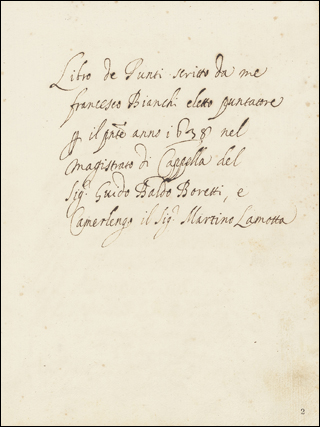 Libro de Punti scritto da me
francesco Bianchi eletto puntatore
p il pnte anno 1638 nel
Magistrato di Cappella del
Sigr Guido Baldo Boretti, e
Camerlengo il Sigr Martino Lamotta
2